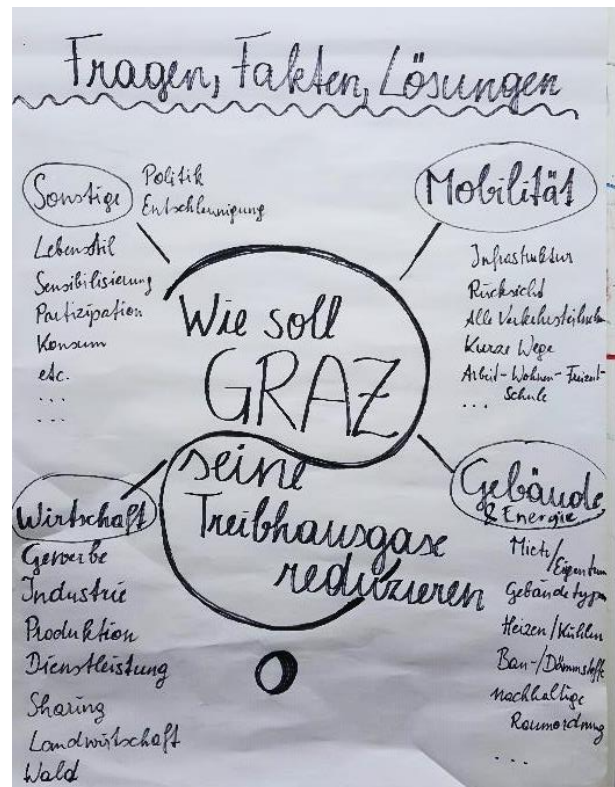 Fragen, Fakten, Lösungen
Sonstige
Politik
Entschleunigung
Lebensstil
Sensibilisierung
Partizipation
Konsum
etc.
...
...
Mobilität
Infrastruktur
Rücksicht
Alle Verkehrsteilnehm
Kurze Wege
Arbeit-Wohnen-Freizeit-
Schule
...
Wie soll
GRAZ
seine
Treibhausgase
reduzieren
Wirtschaft
Gewerbe
Industrie
Produktion
Dienstleistung
Sharing
Landwirtschaft
Wald
Gebäude
& Energie
Miete/
Eigentum
Gebäudetypen
Heizen/Kühlen
Bau-/Dämmstoffe
nachhaltige
Raumordnung
...